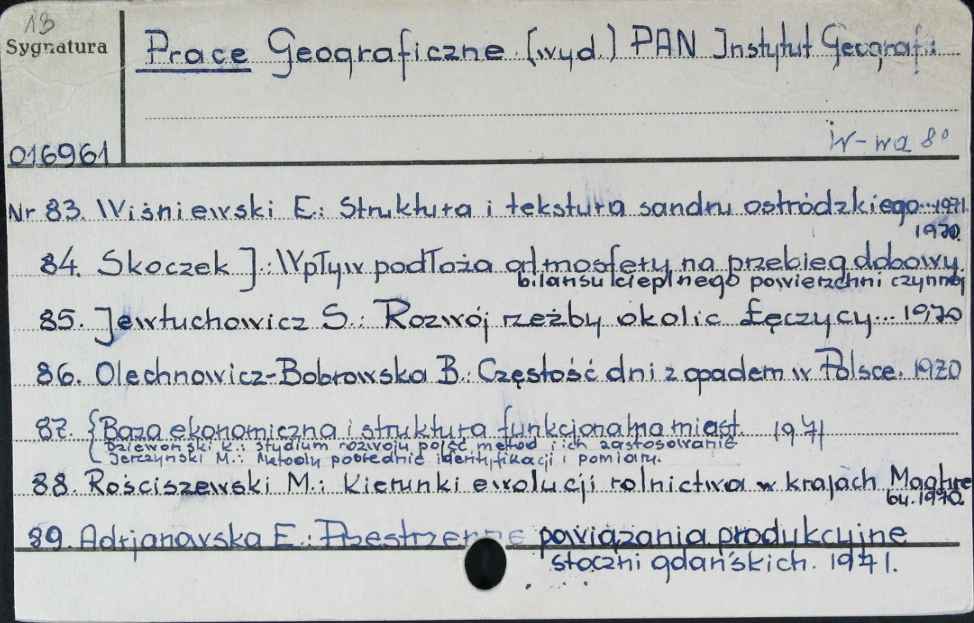 13
Sygnatura
Prace Geograficzne (wyd.) PAN Instytut Geografii
W-wa 8°
016961
Nr 83. Wiśniewski E.: Struktura i tekstura sandru ostródzkiego... 1971
1970
84. Skoczek J.: Wpływ podłoża atmosfery na przebieg dobowy
bilansu cieplnego powierzchni czynnej
85. Jewtuchowicz S.: Rozwój rzeźby okolic Łęczycy... 1970
86. Olechnowicz-Bobrowska B.: Częstość dni z opadem w Polsce. 1970
87. {Baza ekonomiczna i struktura funkcjonalna miast. 1971
Dziewoński K.: Studium rozwoju pojęć metod i ich zastosowanie
Jerczyński M.: Metody pośrednie identyfikacji i pomiaru.
88. Rościszewski M.: Kierunki ewolucji rolnictwa w krajach Maghre
bu. 1970.
89. Adrjanowska E.: Przestrzenne powiązania produkcyjne
stoczni gdańskich. 1971.